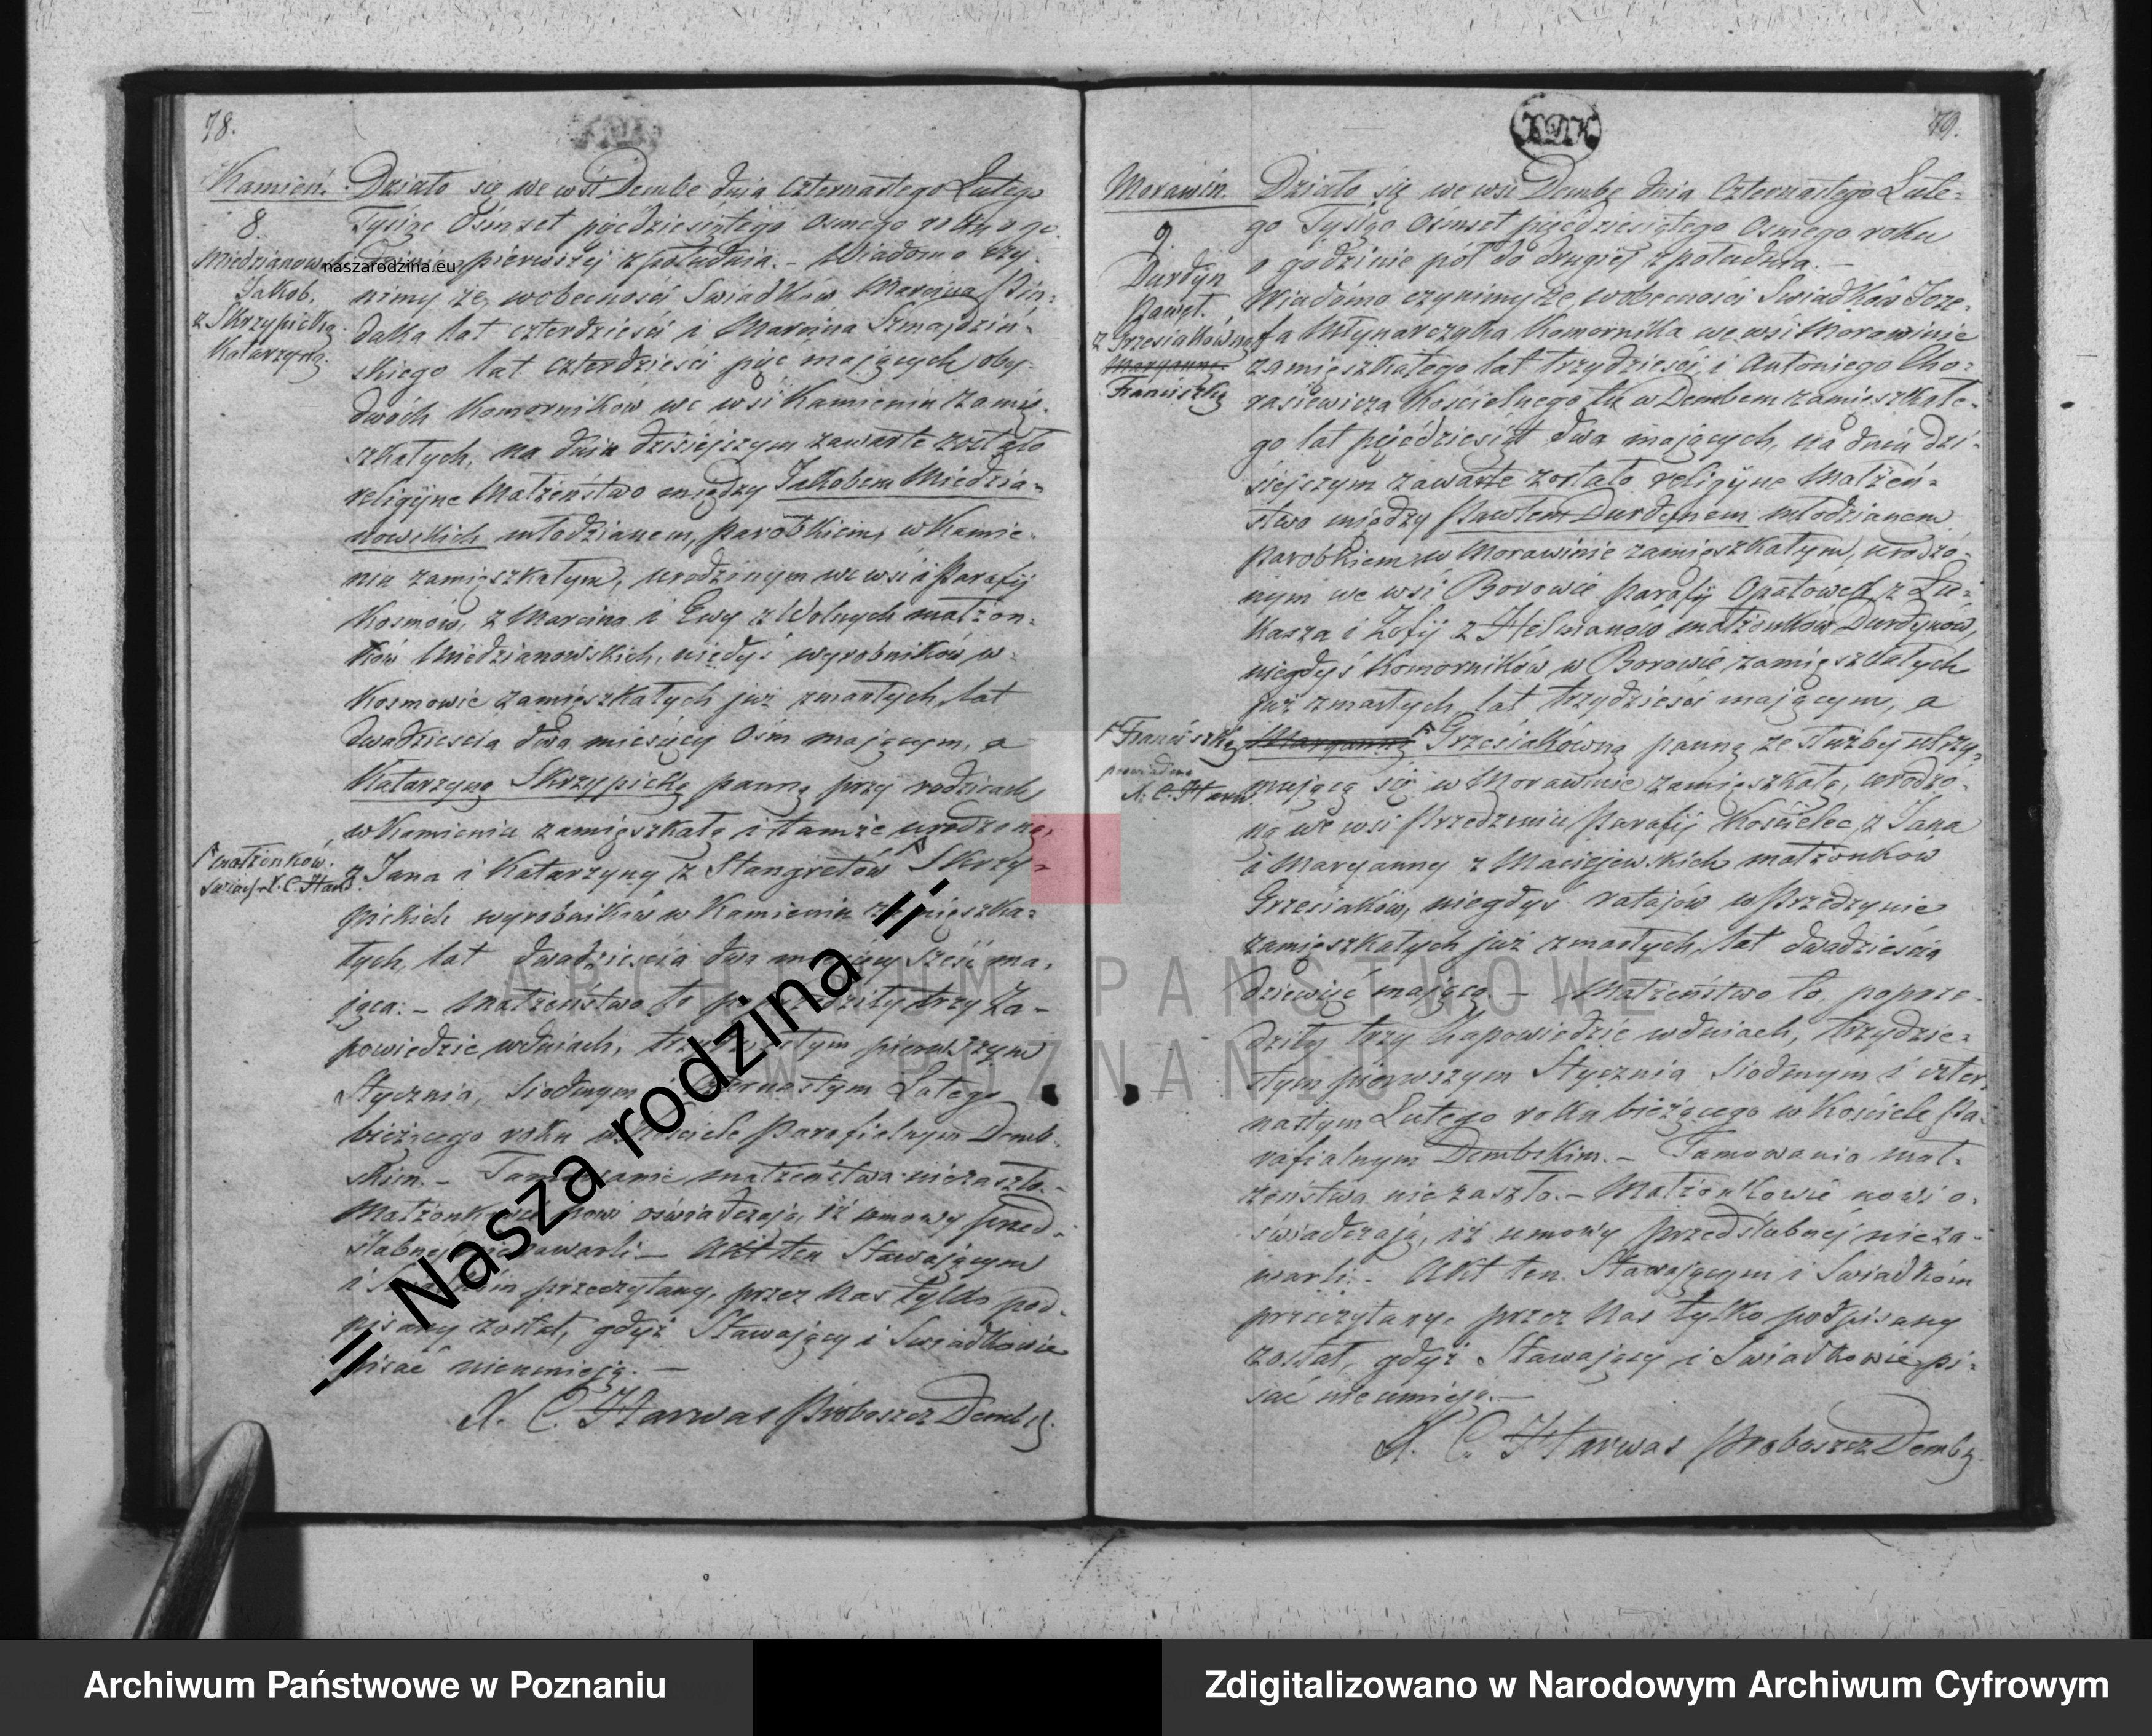 78.
Kamień.
8.
Miedzianowski
Jakób.
z Skrzypicką
Katarzyną.
Działo się we wsi Dembe dnia czternastego Lutego
Tysiąc Ośmset pięćdziesiątego osmego roku o go-
dzinie pierwszej z południa. – Wiadomo czy-
nimy że, w obecności Swiadków Marcina
lat czterdzieści i Marcina Szmajdziń-
skiego lat czterdzieści pięć mających oby-
dwóch Komorników we wsi Kamieniu zamie-
szkałych, na dniu dzisiejszym zawarte zostało
religijne Małżeństwo między Jakóbem Miedzia-
nowskich młodzianem, parobkiem, w Kamie-
niu zamięszkałym, urodzonym we wsi i Parafij
Kosmów, z Marcina i Ewy z Wolnych małżon-
ków Miedzianowskich, niegdyś wyrobników w
Kosmowie zamięszkałych już zmarłych, lat
dwadzieścia dwa miesięcy Ośm mającym, a
Katarzyną Skrzypicką panną przy rodzicach
w Kamieniu zamięszkałą i tamże urodzoną,
z Jana i Katarzyny z Stangretów Skrzy-
pickich wyrobników w Kamieniu zamięszka-
łych, lat dwadzieścia dwa miesięcy sześć ma-
jącą. – Małżeństwo to poprzedziły trzy Za-
powiedzie w dniach, trzydziestym pierwszym
Stycznia, siódmym i czternastym Lutego
bieżącego roku w Kościele Parafialnym Demb-
skim. – Tamowanie małżeństwa nie zaszło. –
Małżonkowie nowi oświadczają, iż umowy przed-
ślubnej nie zawarli. – Akt ten Stawającym
i Swiadkom przeczytany, przez Nas tylko pod-
pisany został, gdyż Stawający i Swiadkowie
pisać nieumieją. –
X. C. Harwas Proboszcz Dembs.
małżonków.
X. C. Harw.
79.
Morawin.
9.
Durdyn
Paweł.
z Grzesiakówną
Maryanną.
Franciszką
Działo się we wsi Dembe dnia czternastego Lute-
go Tysiąc Ośmset pięćdziesiątego osmego roku
o godzinie pół do drugiej z południa. –
Wiadomo czynimy że, w obecności Swiadków Joze-
fa Młynarczyka Komornika we wsi Morawinie
zamięszkałego lat trzydzieści, i Antoniego Cho-
rasiewicza Kościelnego tu w Dembem zamieszkałe-
go lat pięćdziesiąt dwa mających, na dniu dzi-
siejszym zawarte zostało religijne Małżeń-
stwo między Pawłem Durdynem młodzianem
parobkiem w Morawinie zamięszkałym, urodzo-
nym we wsi Borowie parafij Opatówek z Łu-
kasza i Zofij z Helmanów małżonków Durdynów,
niegdyś Komorników w Borowie zamięszkałych
już zmarłych lat trzydzieści mającym, a
Maryanną Grzesiakówną panną ze służby utrzy-
mującą się w Morawinie zamięszkałą, urodzo-
ną we wsi Przedzeniu Parafij Kościelec, z Jana
i Maryanny z Maciejewskich małżonków
Grzesiaków, niegdyś ratajów w Przedzynie
zamięszkałych już zmarłych, lat dwadzieścia
dziewięć mającą. – Małżeństwo to poprze-
dziły trzy Zapowiedzie w dniach, trzydzie-
stym pierwszym Stycznia siódmym i czter-
nastym Lutego roku bieżącego w Kościele Pa-
rafialnym Dembskim. – Tamowania mał-
żeństwa nie zaszło. – Małżonkowie nowi o-
świadczają, iż umowy przedślubnej nieza-
warli. – Akt ten Stawającym i Swiadkom
przeczytany, przez Nas tylko podpisany
został, gdyż Stawający i Swiadkowie pi-
sać nie umieją. –
X. C. Harwas Proboszcz Dembs.
Franciszką
X. C. Harw.
naszarodzina.eu
-= Nasza rodzina =-
ARCHIWUM PAŃSTWOWE
W POZNANIU
Archiwum Państwowe w Poznaniu
Zdigitalizowano w Narodowym Archiwum Cyfrowym